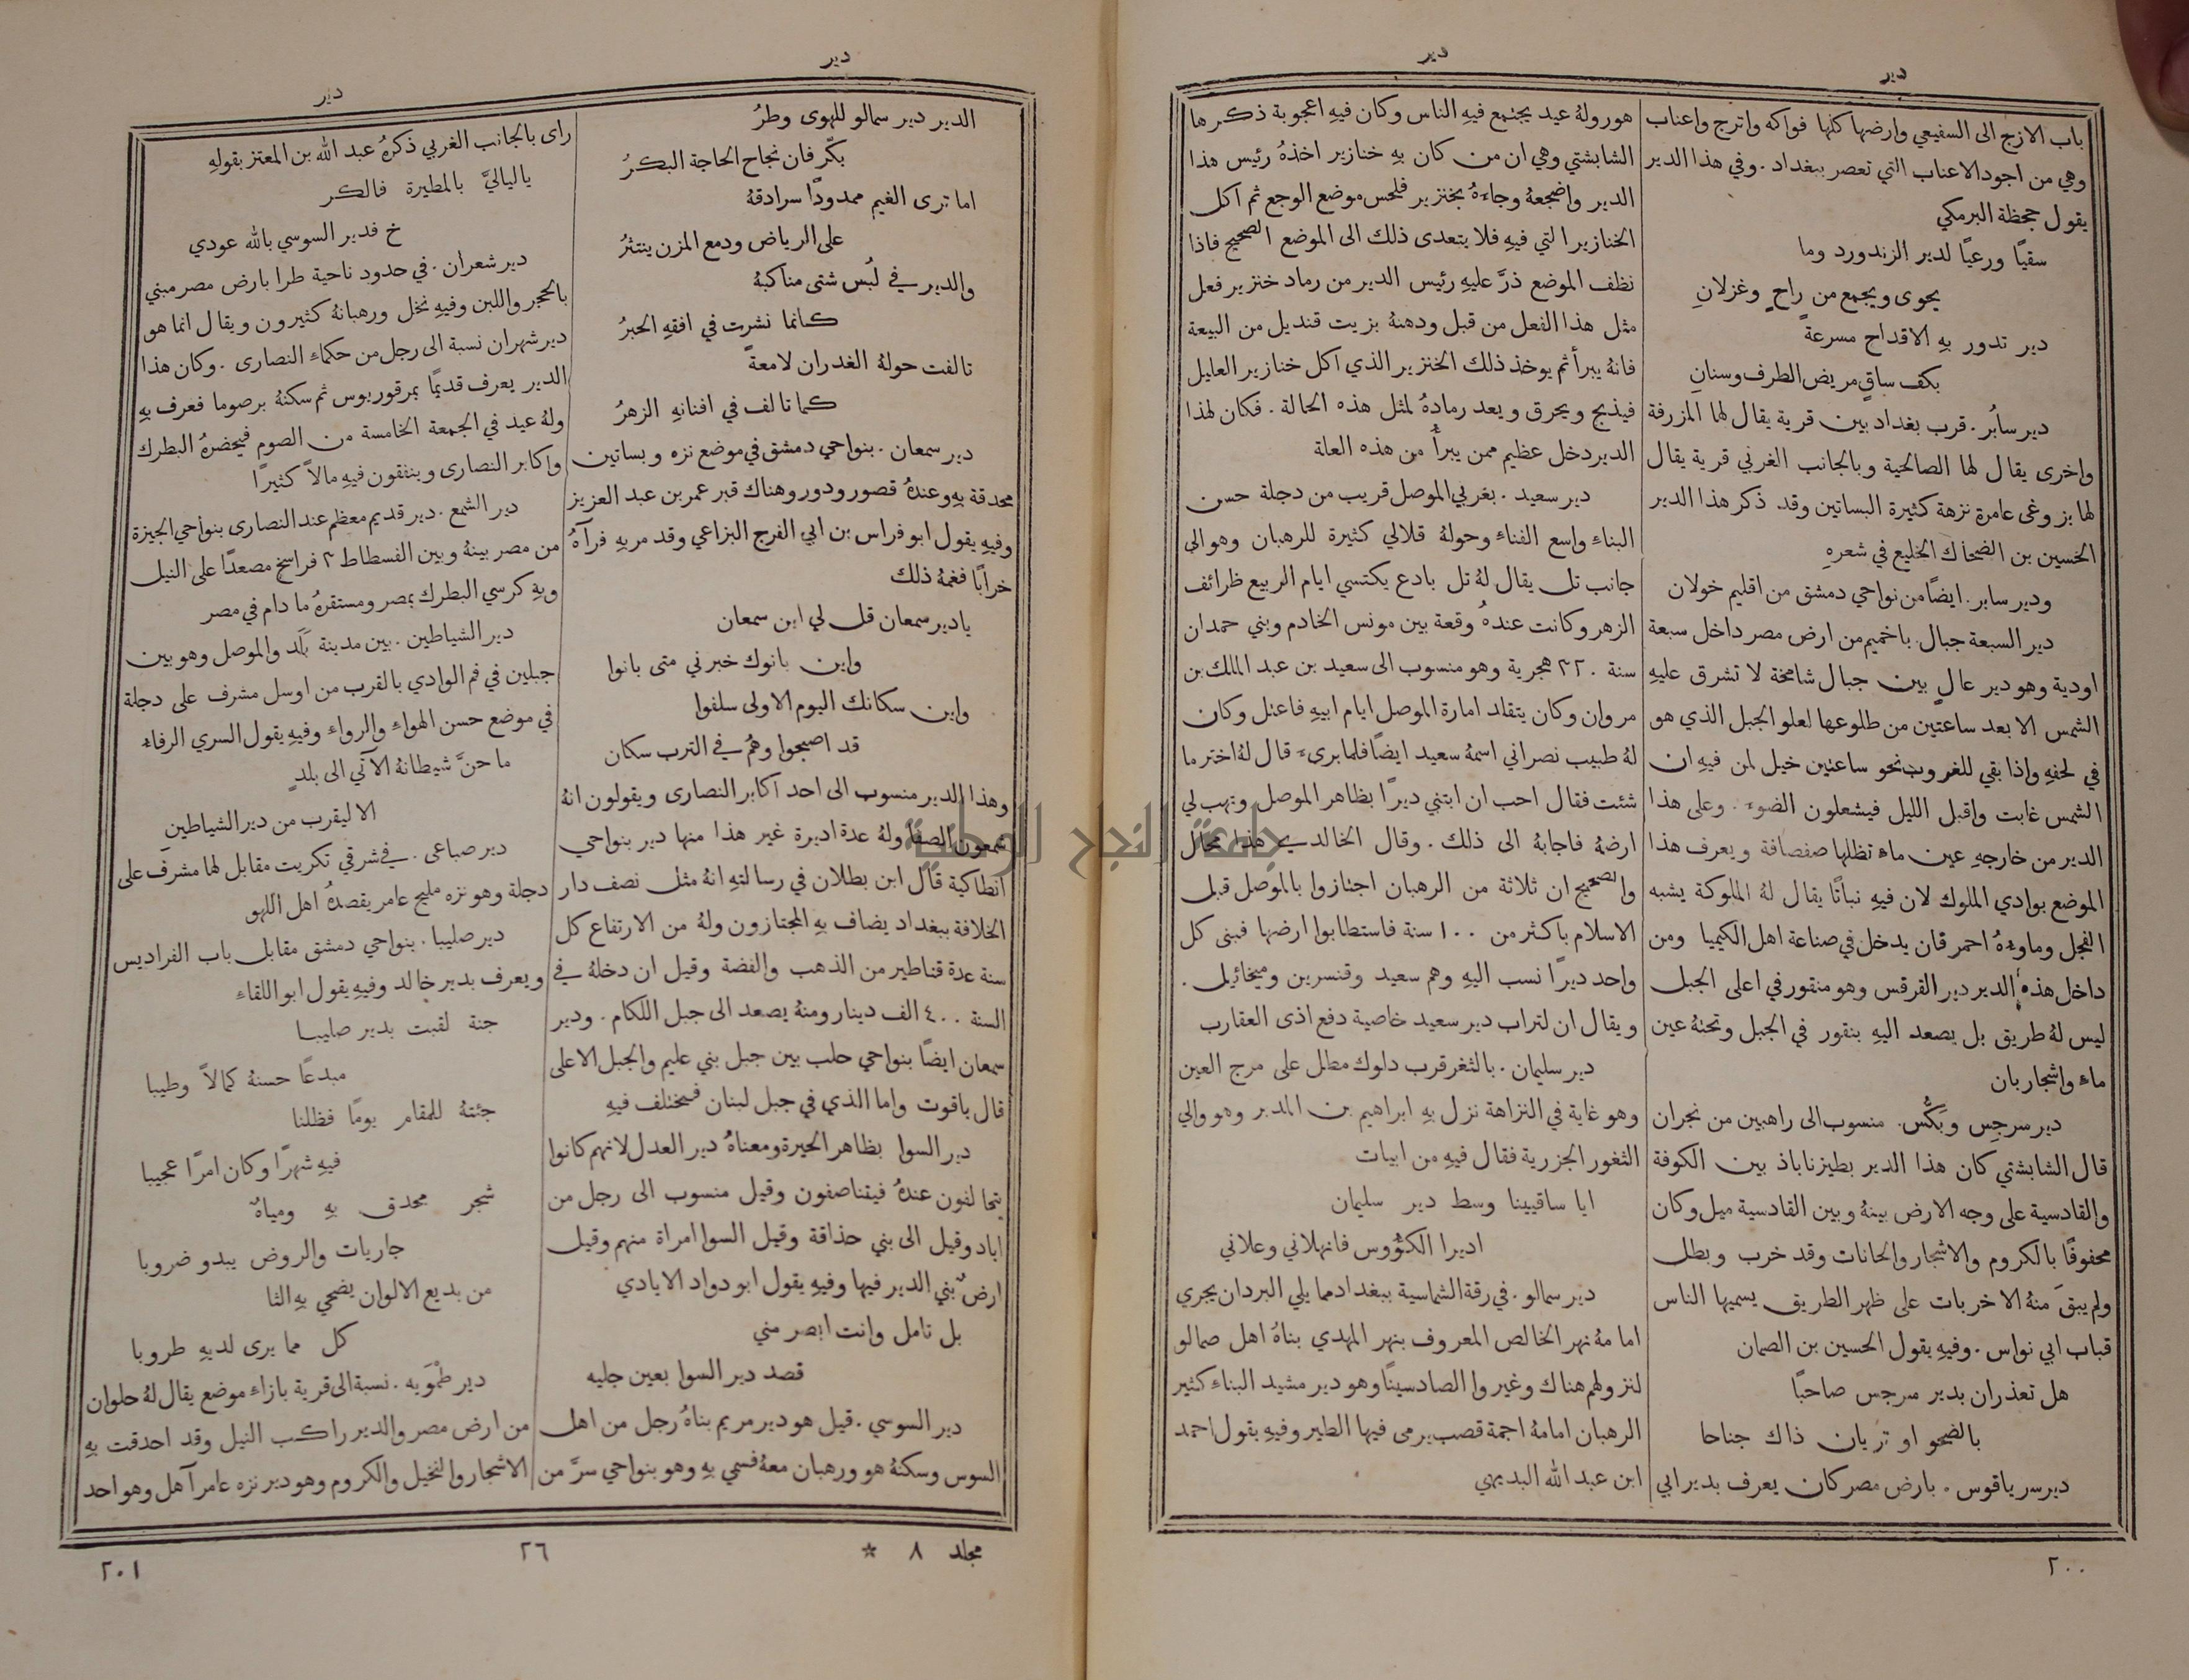 دير
دير
باب الازج الى السفيعي وارضها كلها فواكه واترج واعناب
وهي من اجود الاعناب التي تعصر ببغداد . وفي هذا الدير
يقول جحظة البرمكي
سقيًا ورعيًا لدير الزندورد وما
يحوى ويجمع من راحٍ وغزلانِ
دير تدور بهِ الاقداح مسرعةً
بكف ساقٍ مريض الطرف وسنانِ
دير سابُر . قرب بغداد بين قرية يقال لها المزرفة
واخرى يقال لها الصالحية وبالجانب الغربي قرية يقال
لها بزوغى عامرة نزهة كثيرة البساتين وقد ذكر هذا الدير
الحسين بن الضحاك الخليع في شعرهِ
ودير سابر . ايضًا من نواحي دمشق من اقليم خولان
دير السبعة جبال . باخميم من ارض مصر داخل سبعة
اودية وهو دير عالٍ بين جبال شامخة لا تشرق عليهِ
الشمس الا بعد ساعتين من طلوعها لعلو الجبل الذي هو
في لحفهِ واذا بقي للغروب نحو ساعتين خيل لمن فيهِ ان
الشمس غابت واقبل الليل فيشعلون الضوء . وعلى هذا
الدير من خارجهِ عين ماء تظلها صفصافة ويعرف هذا
الموضع بوادي الملوك لان فيهِ نباتًا يقال لهُ الملوكة يشبه
الفجل وماوهُ احمر قان يدخل في صناعة اهل الكيميا ومن
داخل هذهِ الدير دير القرقس وهو منقور في اعلى الجبل
ليس لهُ طريق بل يصعد اليهِ بنقور في الجبل وتحتهُ عين
ماء واشجار بان
دير سرجس وبَكُس . منسوب الى راهبين من نجران
قال الشابشتي كان هذا الدير بطيزناباذ بين الكوفة
والقادسية على وجه الارض بينهُ وبين القادسية ميل وكان
محفوفًا بالكروم والاشجار والحانات وقد خرب وبطل
ولم يبقَ منهُ الا خربات على ظهر الطريق يسميها الناس
قباب ابي نواس . وفيهِ يقول الحسين بن الصمان
هل تعذران بدير سرجس صاحبًا
بالصحو او تريان ذاك جناحا
دير سرياقوس . بارض مصر كان يعرف بدير ابي
هور ولهُ عيد يجتمع فيهِ الناس وكان فيهِ اعجوبة ذكرها
الشابشتي وهي ان من كان بهِ خنازير اخذهُ رئيس هذا
الدير واضجعهُ وجاءهُ بخنزير فلحس موضع الوجع ثم اكل
الخنازير التي فيهِ فلا يتعدى ذلك الى الموضع الصحيح فاذا
نظف الموضع ذرَّ عليهِ رئيس الدير من رماد خنزير فعل
مثل هذا الفعل من قبل ودهنهُ بزيت قنديل من البيعة
فانهُ يبرأ ثم يوخذ ذلك الخنزير الذي اكل خنازير العليل
فيذبح ويحرق ويعد رمادهُ لمثل هذه الحالة . فكان لهذا
الدير دخل عظيم ممن يبرأ من هذه العلة
دير سعيد . بغربي الموصل قريب من دجلة حسن
البناء واسع الفناء وحولهُ قلالي كثيرة للرهبان وهو الى
جانب تل يقال لهُ تل بادع يكتسي ايام الربيع ظرائف
الزهر وكانت عندهُ وقعة بين مونس الخادم وبني حمدان
سنة ٣٢٠ هجرية وهو منسوب الى سعيد بن عبد الملك بن
مروان وكان يتقلد امارة الموصل ايام ابيهِ فاعتل وكان
لهُ طبيب نصراني اسمهُ سعيد ايضًا فلما برىء قال لهُ اختر ما
شئت فقال احب ان ابتني ديرًا بظاهر الموصل وتهب لي
ارضهُ فاجابهُ الى ذلك . وقال الخالدي هذا محال
والصحيح ان ثلاثة من الرهبان اجتازوا بالموصل قبل
الاسلام باكثر من ١٠٠ سنة فاستطابوا ارضها فبنى كل
واحد ديرًا نسب اليهِ وهم سعيد وقنسرين وميخائيل .
ويقال ان لتراب دير سعيد خاصية دفع اذى العقارب
دير سليمان . بالثغر قرب دلوك مطل على مرج العين
وهو غاية في النزاهة نزل بهِ ابراهيم بن المدبر وهو والي
الثغور الجزرية فقال فيهِ من ابيات
ايا ساقيينا وسط دير سليمان
اديرا الكؤوس فانهلاني وعلاني
دير سمالو . في رقة الشماسية ببغداد مما يلي البردان يجري
امامهُ نهر الخالص المعروف بنهر المهدي بناهُ اهل صمالو
لنزولهم هناك وغيروا الصاد سينًا وهو دير مشيد البناء كثير
الرهبان امامهُ اجمة قصب يرمى فيها الطير وفيهِ يقول احمد
ابن عبد الله البديهي
٢٠٠
دير
دير
الدير دير سمالو للهوى وطرُ
بكّر فان نجاح الحاجة البكرُ
اما ترى الغيم ممدودًا سرادقهُ
على الرياض ودمع المزن ينتثرُ
والدير في لُبس شتى مناكبهُ
كانما نشرت في افقهِ الحبرُ
تالفت حولهُ الغدران لامعةً
كما تالف في افنانهِ الزهرُ
دير سمعان . بنواحي دمشق في موضع نزه وبساتين
محدقة بهِ وعندهُ قصور ودور وهناك قبر عمر بن عبد العزيز
وفيهِ يقول ابو فراس بن ابي الفرج البزاعي وقد مر بهِ فرآهُ
خرابًا فغمهُ ذلك
يا دير سمعان قل لي اين سمعان
واين بانوك خبرني متى بانوا
واين سكانك اليوم الاولى سلفوا
قد اصبحوا وهمُ في الترب سكان
وهذا الدير منسوب الى احد اكابر النصارى ويقولون انهُ
شمعون الصفا ولهُ عدة اديرة غير هذا منها دير بنواحي
انطاكية قال ابن بطلان في رسالتهِ انهُ مثل نصف دار
الخلافة ببغداد يضاف بهِ المجتازون ولهُ من الارتفاع كل
سنة عدة قناطير من الذهب والفضة وقيل ان دخلهُ في
السنة ٤٠٠ الف دينار ومنهُ يصعد الى جبل اللكام . ودير
سمعان ايضًا بنواحي حلب بين جبل بني عليم والجبل الاعلى
قال ياقوت واما الذي في جبل لبنان فمختلف فيهِ
دير السوا بظاهر الحيرة ومعناهُ دير العدل لانهم كانوا
يتحالفون عندهُ فيتناصفون وقيل منسوب الى رجل من
اياد وقيل الى بني حذاقة وقيل السوا امراة منهم وقيل
ارضٌ بني الدير فيها وفيهِ يقول ابو دواد الايادي
بل تامل وانت ابصر مني
قصد دير السوا بعين جليه
دير السوسي . قيل هو دير مريم بناهُ رجل من اهل
السوس وسكنهُ هو ورهبان معهُ فسمي بهِ وهو بنواحي سرَّ من
راى بالجانب الغربي ذكرهُ عبد الله بن المعتز بقولهِ
ياليالىَّ بالمطيرة فالكر
خ فدير السوسي بالله عودي
دير شعران . في حدود ناحية طرا بارض مصر مبني
بالحجر واللبن وفيهِ نخل ورهبانهُ كثيرون ويقال انما هو
دير شهران نسبة الى رجل من حكماء النصارى . وكان هذا
الدير يعرف قديمًا بمرقوريوس ثم سكنهُ برصوما فعرف بهِ
ولهُ عيد في الجمعة الخامسة من الصوم فيحضرهُ البطرك
واكابر النصارى وينفقون فيهِ مالاً كثيرًا
دير الشمع . دير قديم معظم عند النصارى بنواحي الجيزة
من مصر بينهُ وبين الفسطاط ٣ فراسخ مصعدًا على النيل
وبهِ كرسي البطرك بمصر ومستقرهُ ما دام في مصر
دير الشياطين . بين مدينة بَلَد والموصل وهو بين
جبلين في فم الوادي بالقرب من اوسل مشرف على دجلة
في موضع حسن الهواء والرواء وفيهِ يقول السري الرفاء
ما حنَّ شيطانهُ الآتي الى بلدٍ
الا ليقرب من دير الشياطين
دير صباعى . في شرقي تكريت مقابل لها مشرف على
دجلة وهو نزه مليح عامر يقصدهُ اهل اللهو
دير صليبا . بنواحي دمشق مقابل باب الفراديس
ويعرف بدير خالد وفيهِ يقول ابو اللقاء
جنة لقبت بدير صليبا
مبدعًا حسنهُ كمالاً وطيبا
جئتهُ للمقام يومًا فظلنا
فيهِ شهرًا وكان امرًا عجيبا
شجر محدق بهِ ومياهٌ
جاريات والروض يبدو ضروبا
من بديع الالوان يضحي بهِ الثا
كل مما يرى لديهِ طروبا
دير طَمْوَيه . نسبة الى قرية بازاء موضع يقال لهُ حلوان
من ارض مصر والدير راكب النيل وقد احدقت بهِ
الاشجار والنخيل والكروم وهو دير نزه عامر آهل وهو احد
مجلد ٨ * ٢٦
٢٠١
جامعة النجاح الوطنية